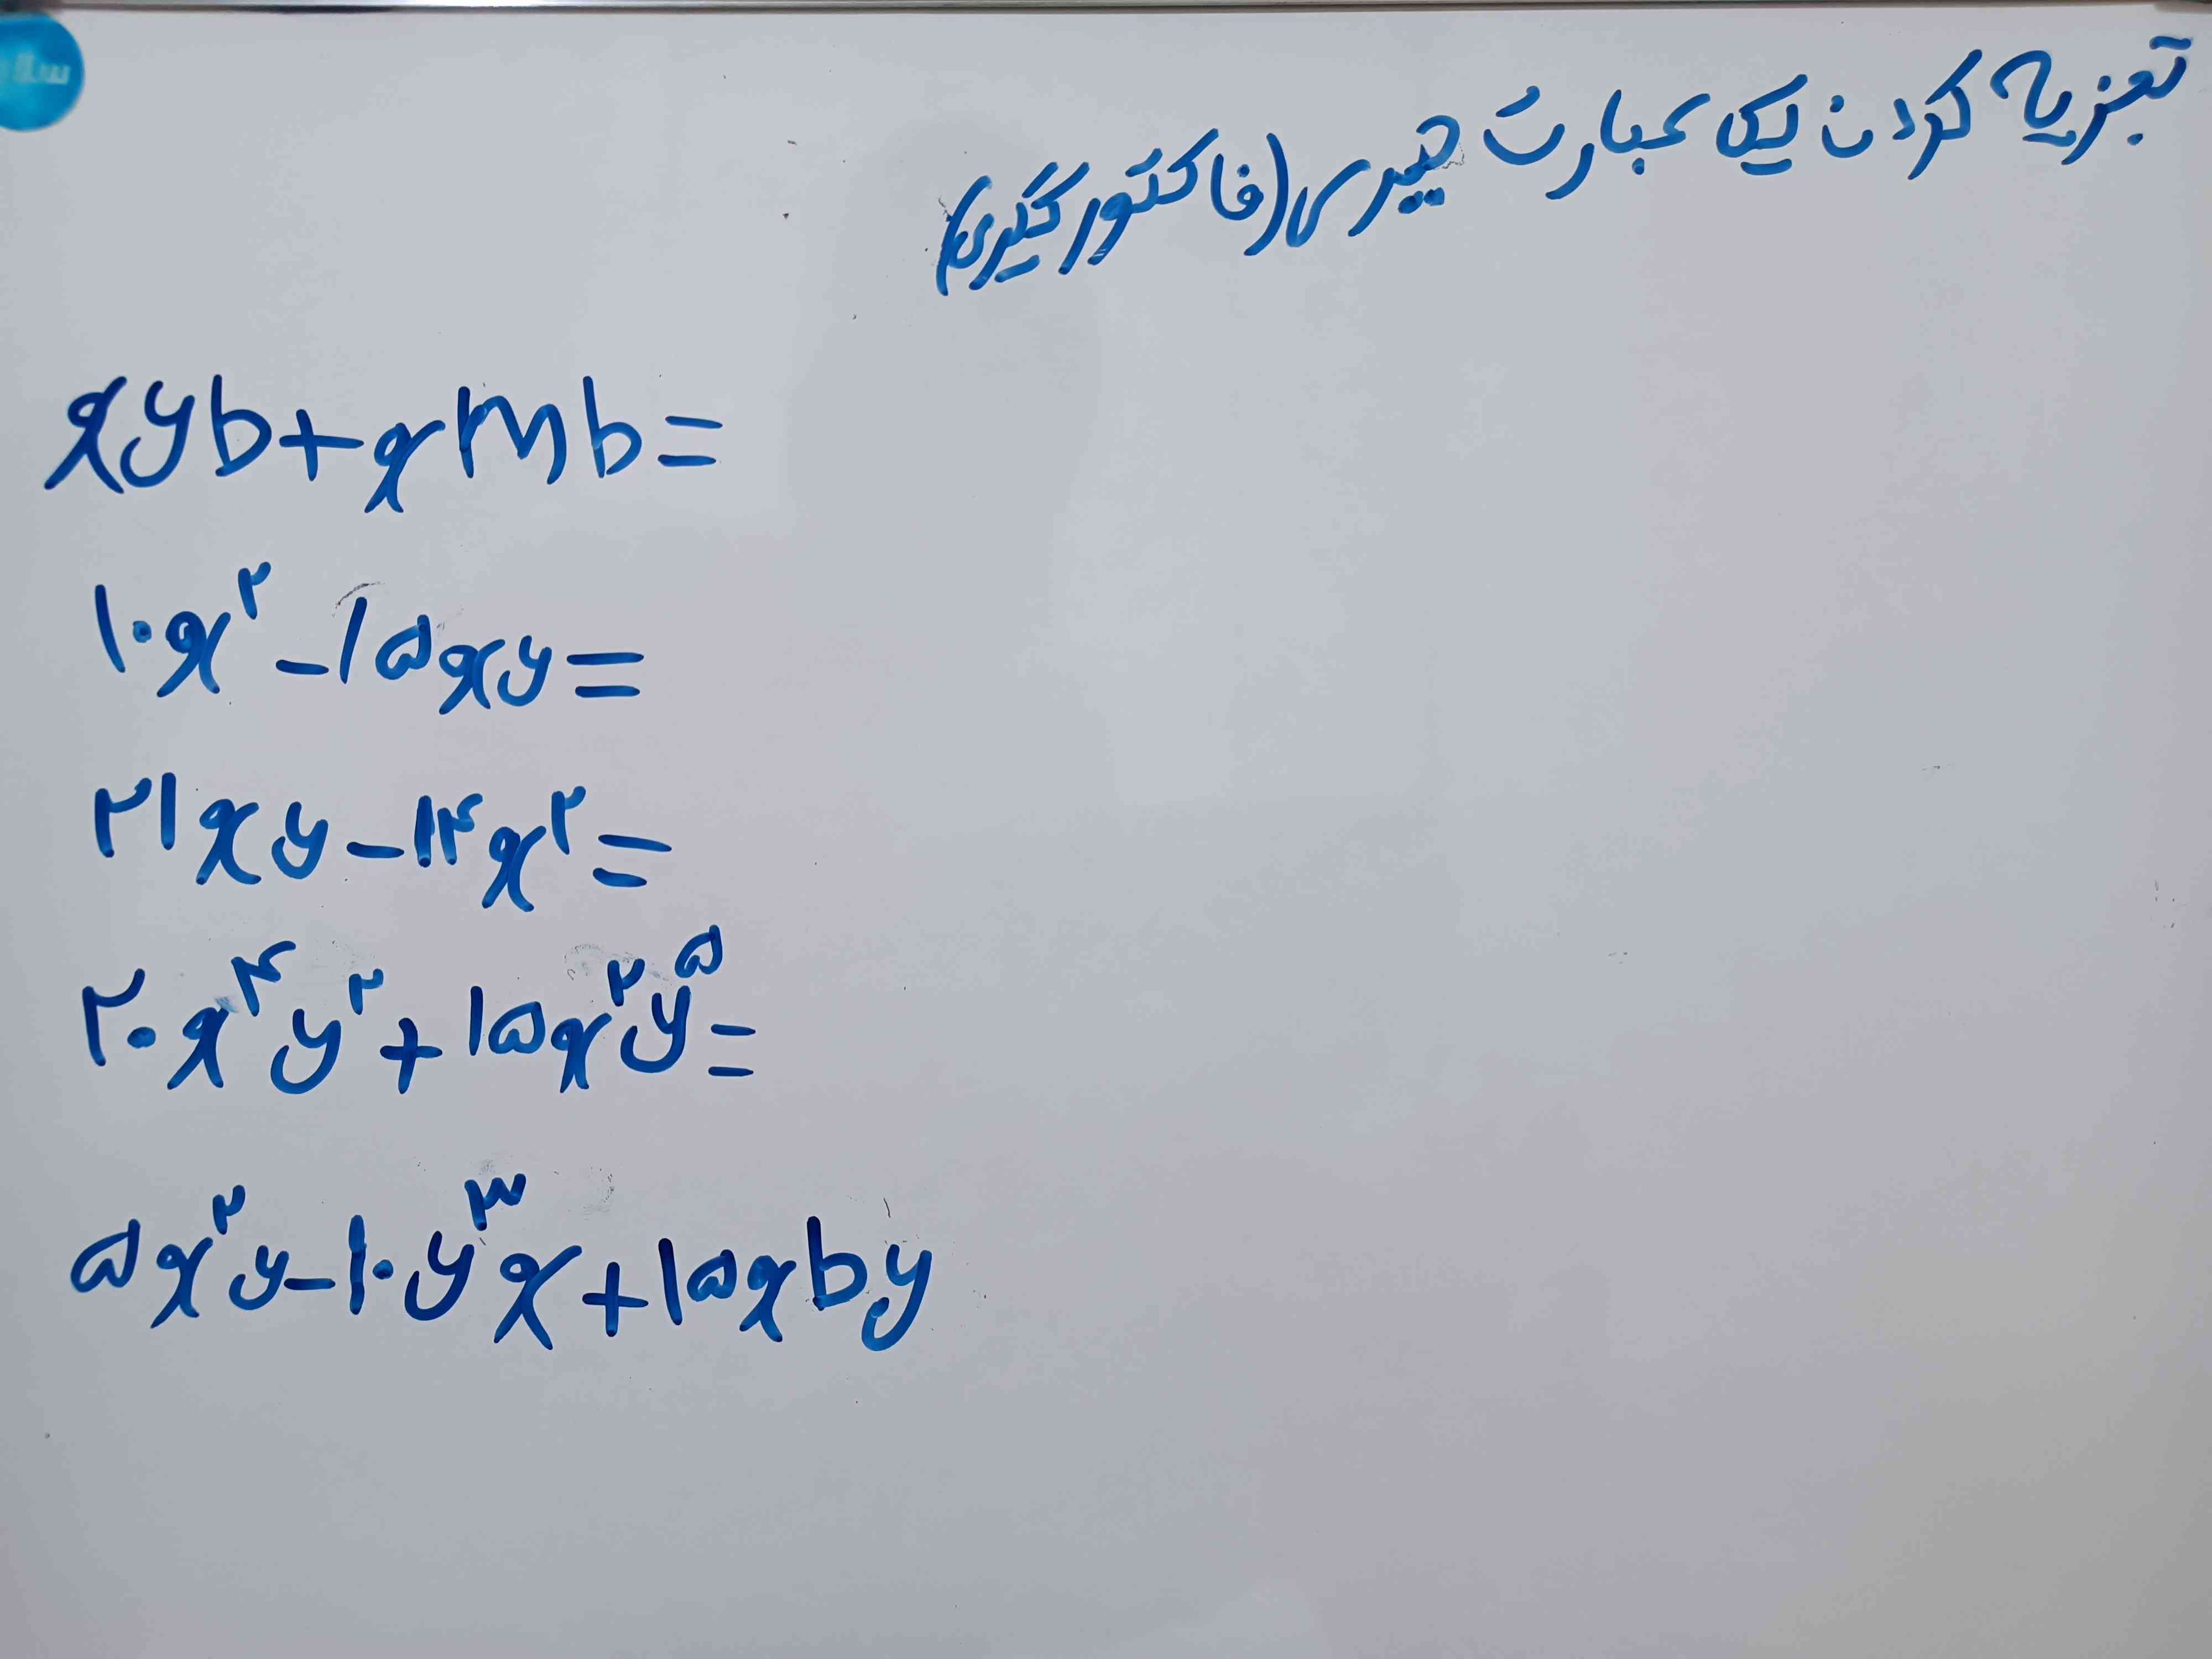 تجزیه کردن یک عبارت جبری (فاکتورگیری)
xyb+xmb=
۱۰x^۲-۱۵xy=
۲۱xy-۱۴x^۲=
۲۰x^۴y^۲+۱۵x^۲y^۵=
۵x^۲y-۱۰y^۳x+۱۵xby